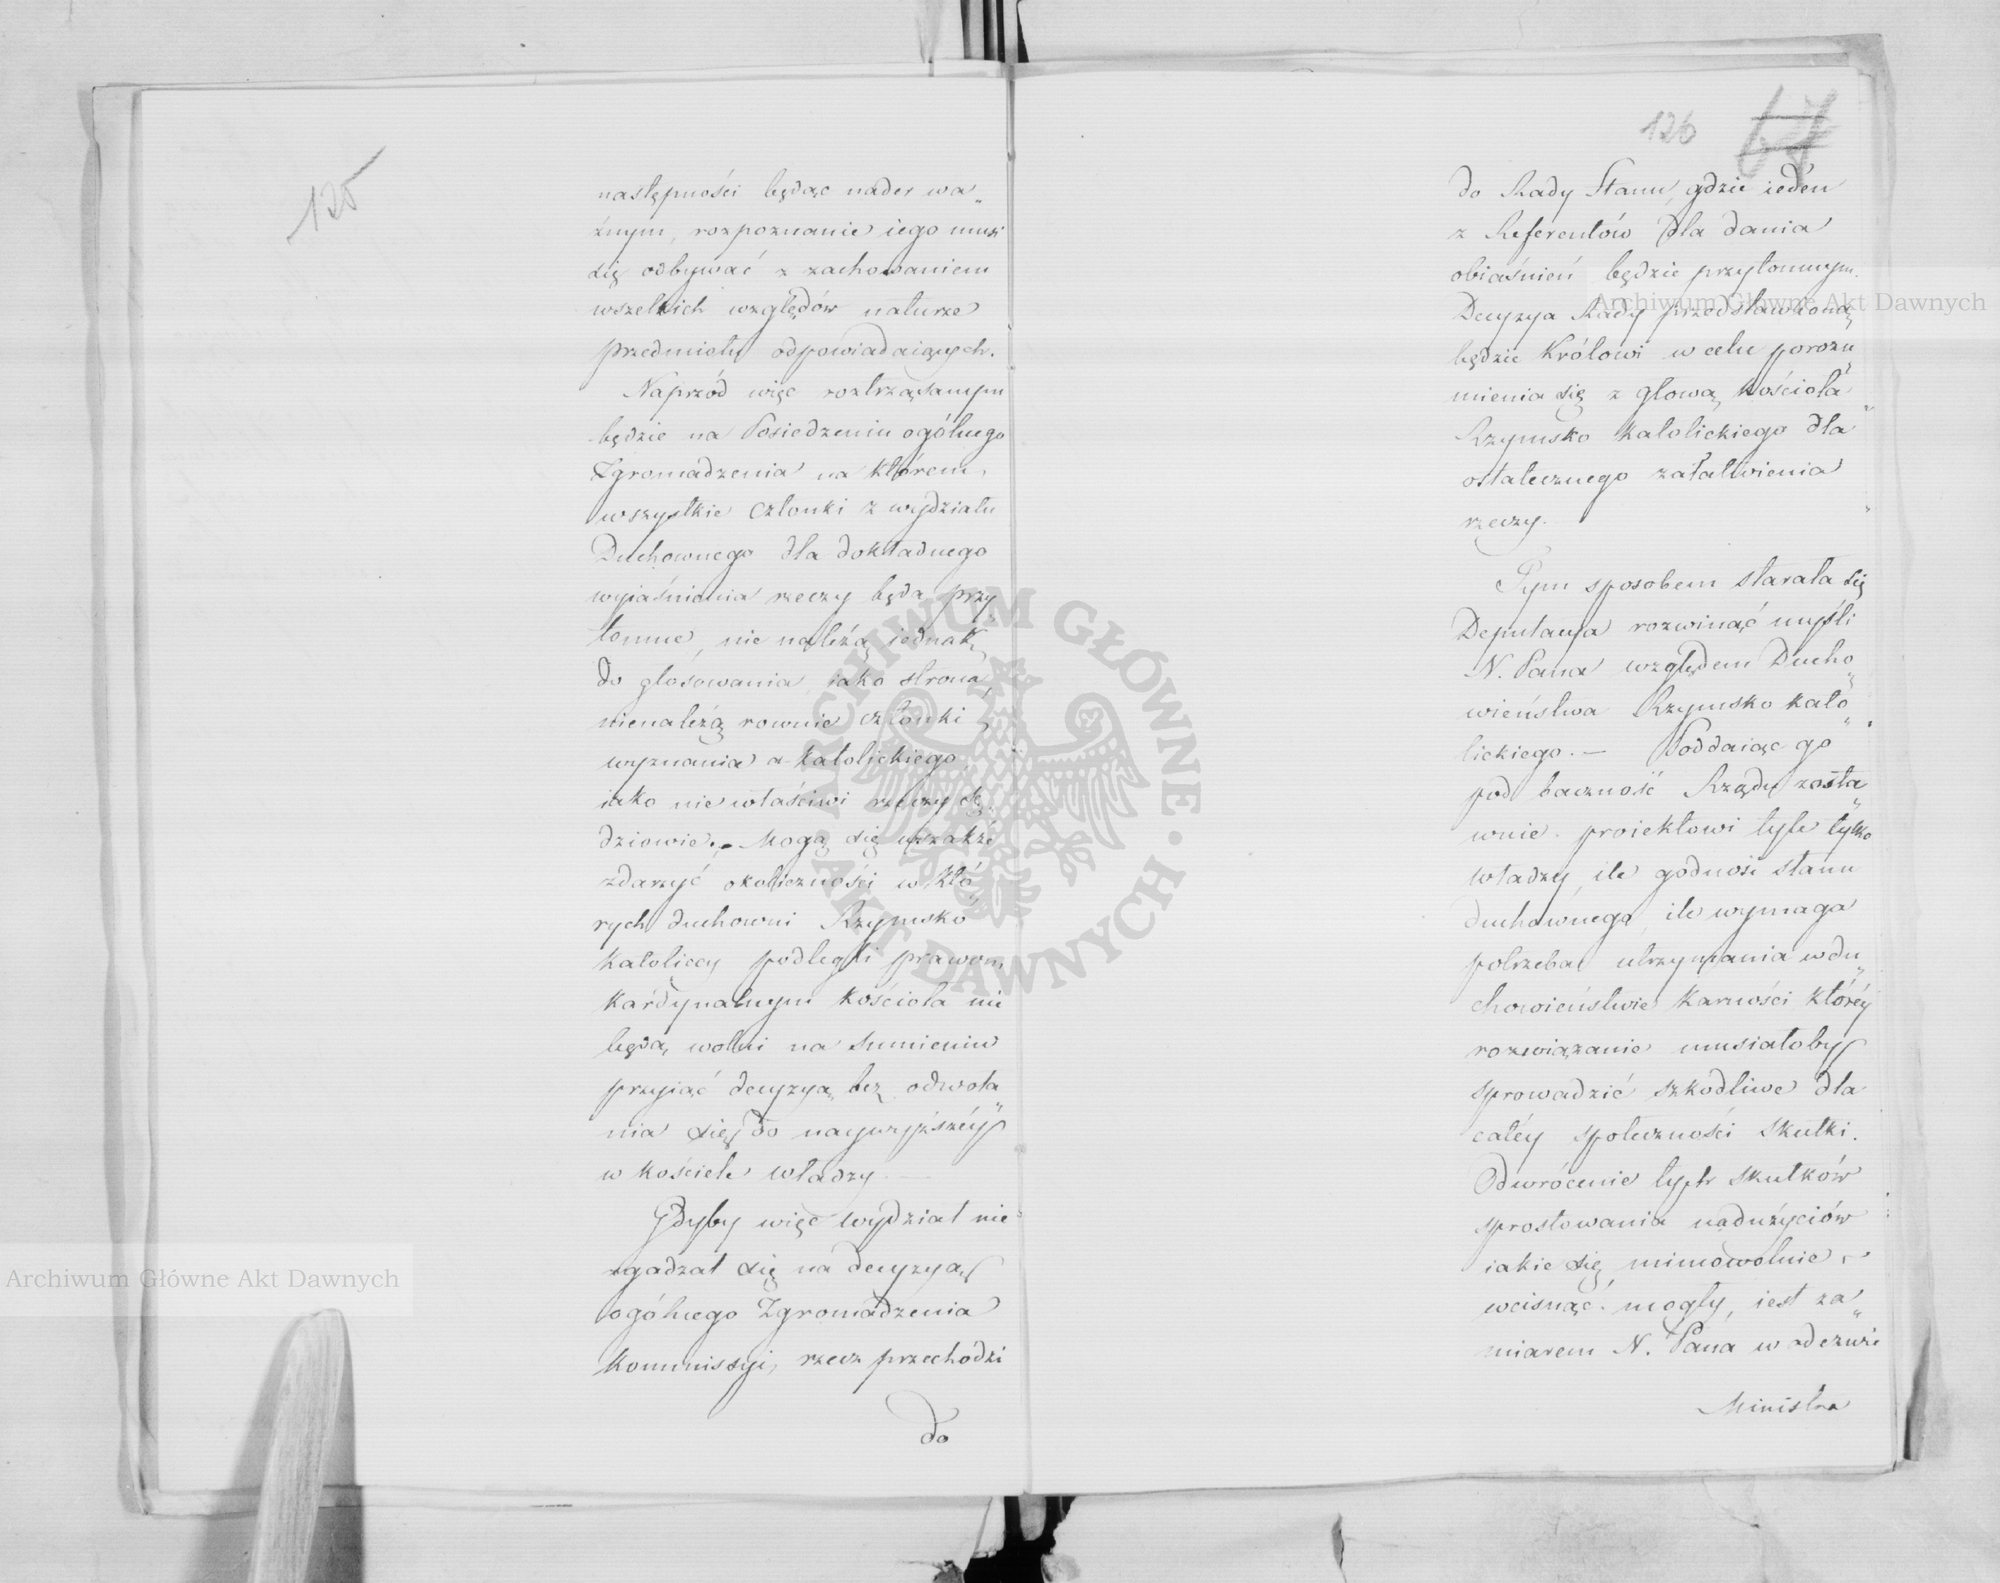 125
następności będąc nader wa„
żnym, rozpoznanie iego musi
się odbywać z zachowaniem
wszelkich względów naturze
przedmiotu odpowiadaiących.
Naprzód więc roztrząsanym
będzie na Posiedzeniu ogólnego
Zgromadzenia na którem,
wszystkie członki z wydziału
Duchownego dla dokładnego
wyiaśnienia rzeczy będą przy„
tomne, nie należą iednak,
do głosowania, iako strona,
nienależą rownie członki
wyznania a-katolickiego,
iako niewłaściwi rzeczy sę„
dziowie. – Mogą się wszakże
zdarzyć okoliczności w któ„
rych duchowni Rzymsko
katoliccy podlegli prawom
kardynalnym kościoła nie
będą wolni na sumieniu
przyiąć decyzyą bez odwoła„
nia się do naywyższéy
w kościele władzy. —
Gdyby więc wydział nie
zgadzał się na decyzyą
ogólnego Zgromadzenia
Kommissyi, rzecz przechodzi
do
126 67
do Rady Stanu, gdzie ieden
z Referentów dla dania
obiaśnień będzie przytomnym.
Decyzya Rady przedstawioną
będzie Królowi w celu porozu„
mienia się z głową kościoła
Rzymsko katolickiego dla
ostatecznego załatwienia
rzeczy.
Tym sposobem starała się
Deputacya rozwinąć myśli
N. Pana względem Ducho„
wieństwa Rzymsko kato„
lickiego. — Poddaiąc go
pod baczność Rządu zosta„
wnie. proiektowi tyle tylko
władzy, ile godność stanu
duchownego, ile wymaga
potrzeba utrzymania w du„
chowieństwie karności któréy
rozwiązanie musiałoby
sprowadzić szkodliwe dla
całéy społeczności skutki.
Odwrócenie tych skutków
sprostowania nadużyciów
iakie się mimowolnie
wcisnąć mogły, iest za„
miarem N. Pana w odezwie
Ministra
Archiwum Główne Akt Dawnych
Archiwum Główne Akt Dawnych
ARCHIWUM GŁÓWNE · AKT DAWNYCH ·